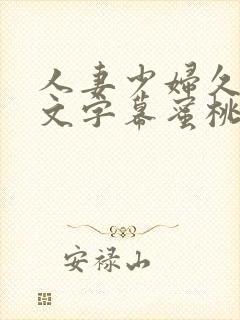 人妻少婦久
文字幕蜜桃
安禄山